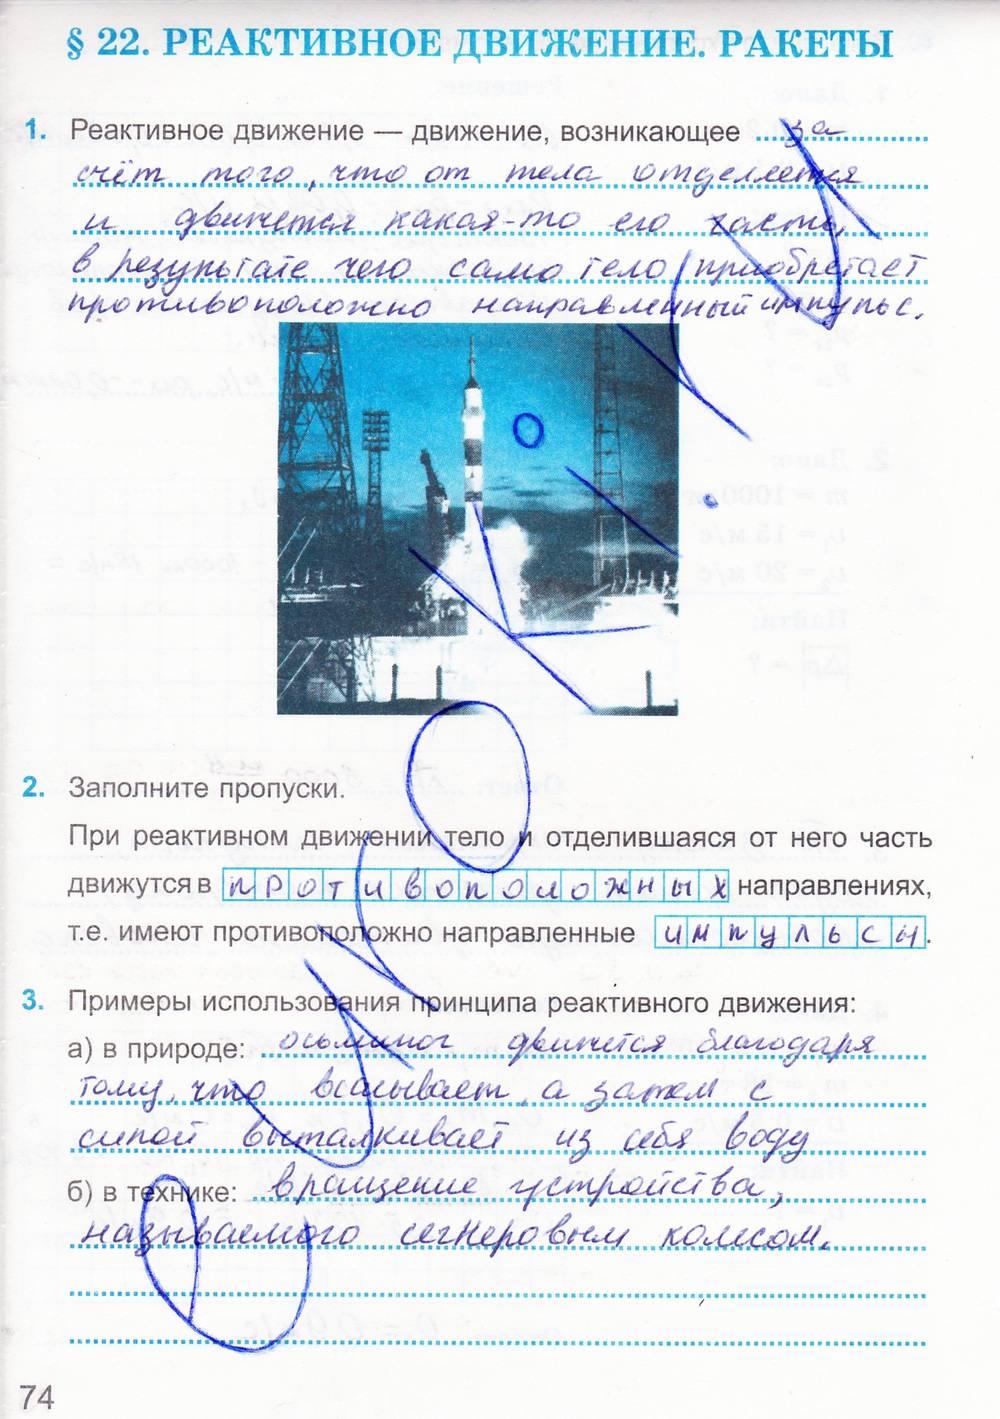 § 22. РЕАКТИВНОЕ ДВИЖЕНИЕ. РАКЕТЫ
1. Реактивное движение — движение, возникающее за
счёт того, что от тела отделяется
и движется какая-то его часть,
в результате чего само тело приобретает
противоположно направленный импульс.
2. Заполните пропуски.
При реактивном движении тело и отделившаяся от него часть
движутся в противоположных направлениях,
т.е. имеют противоположно направленные импульсы.
3. Примеры использования принципа реактивного движения:
а) в природе: осьминог движется благодаря
тому, что всасывает, а затем с
силой выталкивает из себя воду
б) в технике: вращение устройства,
называемого сегнеровым колесом.
74